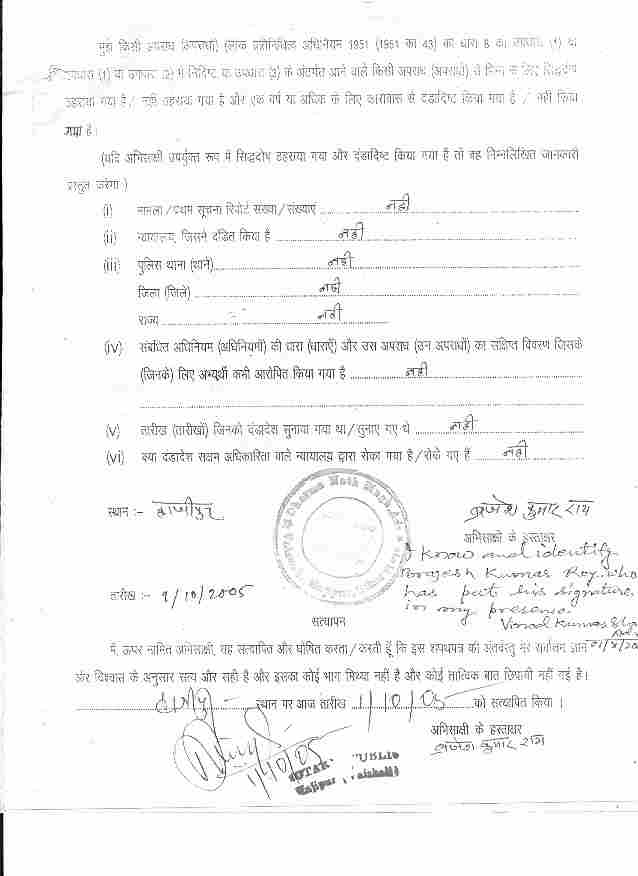 मुझे किसी अपराध (अपराधों) (लोक प्रतिनिधित्व अधिनियम 1951 (1951 का 43) की धारा 8 की उपधारा (1) या
उपधारा (1) या उपधारा (2) में निर्दिष्ट या उपधारा (3) के अंतर्गत आने वाले किसी अपराध (अपराधों) से भिन्न के लिए सिद्धदोष
ठहराया गया है / नहीं ठहराया गया है और एक वर्ष या अधिक के लिए कारावास से दंडादिष्ट किया गया है / नहीं किया
गया है।
(यदि अभिसाक्षी उपर्युक्त रूप में सिद्धदोष ठहराया गया और दंडादिष्ट किया गया है तो वह निम्नलिखित जानकारी
प्रस्तुत करेगा )
(i) मामला/प्रथम सूचना रिपोर्ट संख्या/संख्याएं नही
(ii) न्यायालय, जिसने दंडित किया है नही
(iii) पुलिस थाना (थाने) नही
जिला (जिले) नही
राज्य नही
(iv) संबंधित अधिनियम (अधिनियमों) की धारा (धाराएँ) और उस अपराध (उन अपराधों) का संक्षिप्त विवरण जिसके
(जिनके) लिए अभ्यर्थी कभी आरोपित किया गया है नही
(v) तारीख (तारीखों) जिनको दंडादेश सुनाया गया था/सुनाए गए थे नही
(vi) क्या दंडादेश सक्षम अधिकारिता वाले न्यायालय द्वारा रोका गया है/रोके गए हैं नही
स्थान :- हाजीपुर
ब्रजेश कुमार राय
अभिसाक्षी के हस्ताक्षर
I know and identify
Brajesh Kumar Roy who
has put his signature
in my presence.
तारीख :- 1/10/2005
सत्यापन
मैं, ऊपर नामित अभिसाक्षी, यह सत्यापित और घोषित करता/करती हूँ कि इस शपथपत्र की अंतर्वस्तु मेरे सर्वोत्तम ज्ञान
और विश्वास के अनुसार सत्य और सही है और इसका कोई भाग मिथ्या नहीं है और कोई तात्विक बात छिपायी नहीं गई है।
हाजीपुर स्थान पर आज तारीख 1/10/05 को सत्यापित किया।
अभिसाक्षी के हस्ताक्षर
ब्रजेश कुमार राय
1/10/05
NOTARY PUBLIC
Hajipur (Vaishali)